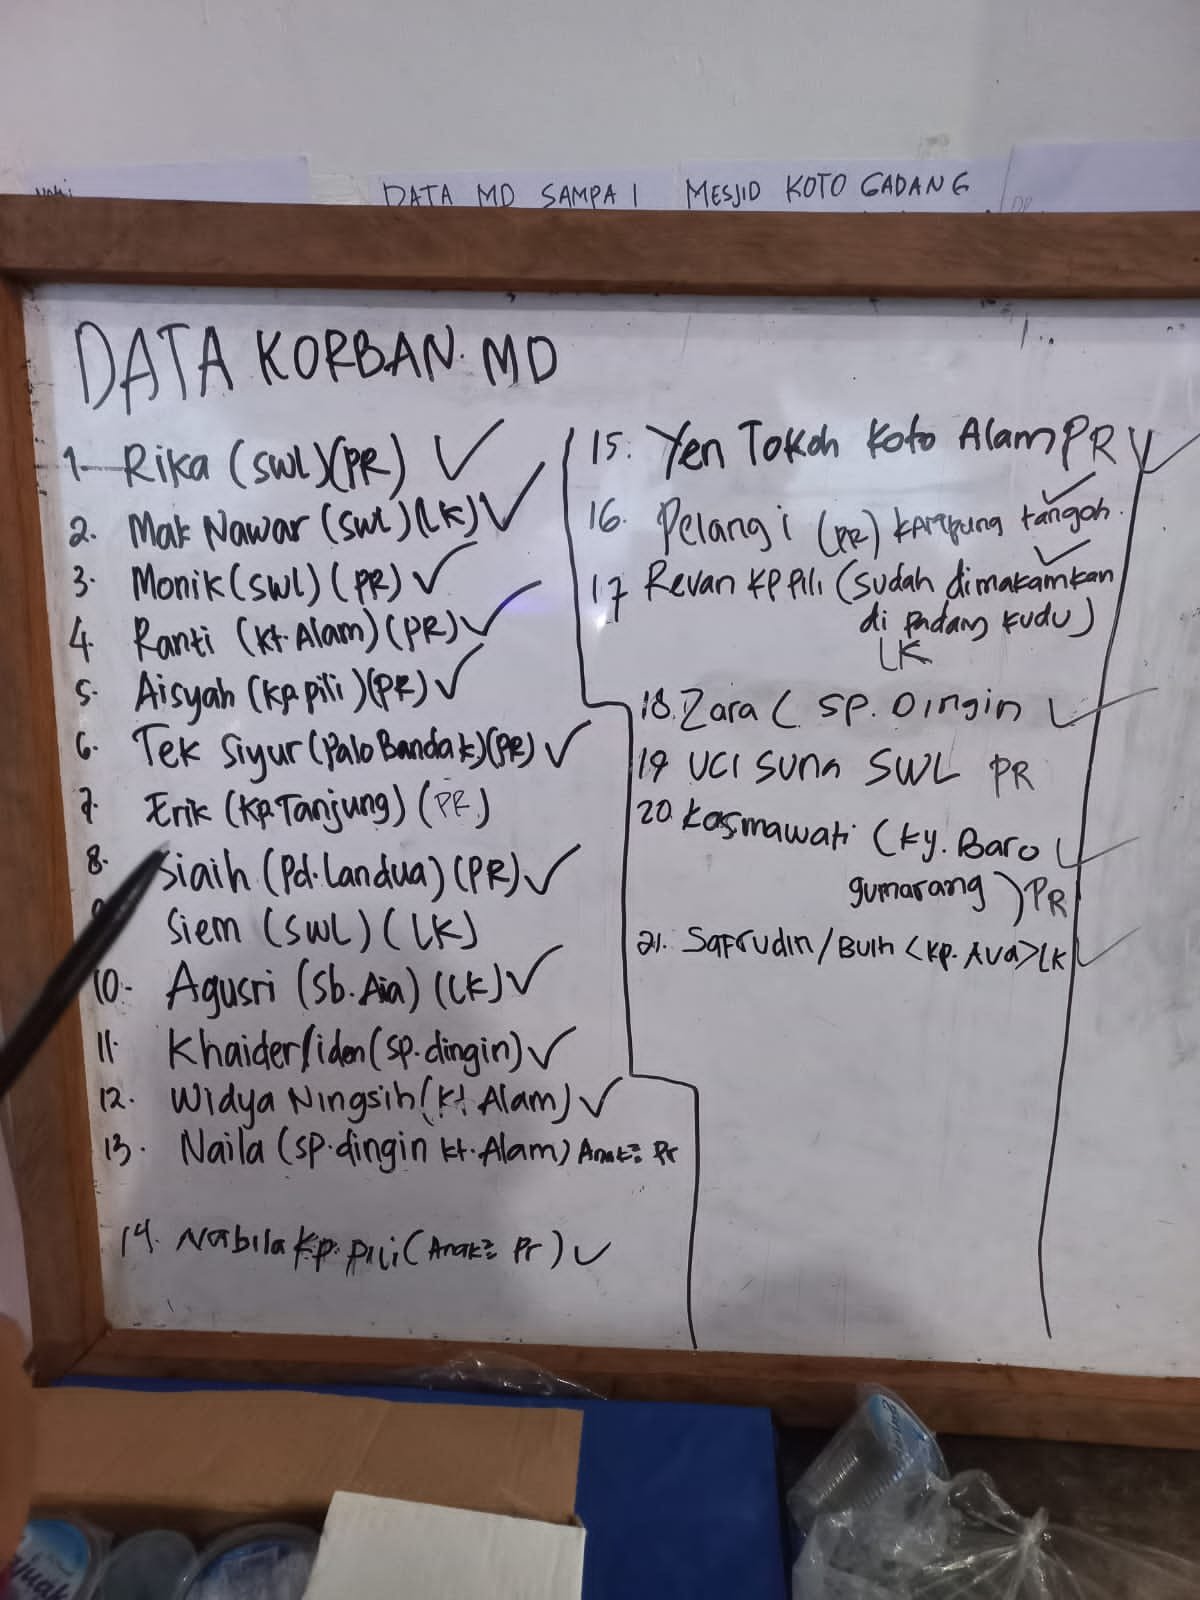 DATA MD SAMPAI MESJID KOTO GADANG
DATA KORBAN MD
1. Rika (SWL)(PR) ✓
2. Mak Nawar (SWL)(LK) ✓
3. Monik (SWL) (PR) ✓
4. Ranti (kt. Alam) (PR) ✓
5. Aisyah (kp. pili) (PR) ✓
6. Tek Siyur (Palo Bandak)(PR) ✓
7. Erik (Kp. Tanjung) (PR)
8. Siaih (Pd. Landua) (PR) ✓
9. Siem (SWL) (LK)
10. Agusri (Sb. Aia) (LK) ✓
11. Khaider/iden (sp. dingin) ✓
12. Widya Ningsih (Kt. Alam) ✓
13. Naila (sp. dingin kt. Alam) Anak² Pr
14. Nabila kp. Pili (Anak² Pr) ✓
15. Yen Tokoh Koto Alam PR ✓
16. Pelangi (PR) Kampung tangah. ✓
17 Revan KP Pili (sudah dimakamkan ✓
di Padang kudu)
LK
18. Zara ( SP. Dingin ✓
19 UCI SUNA SWL PR
20. Kasmawati (Ky. Baro ✓
gumarang ) PR
21. Safrudin / Buih <kp. Ava> LK ✓